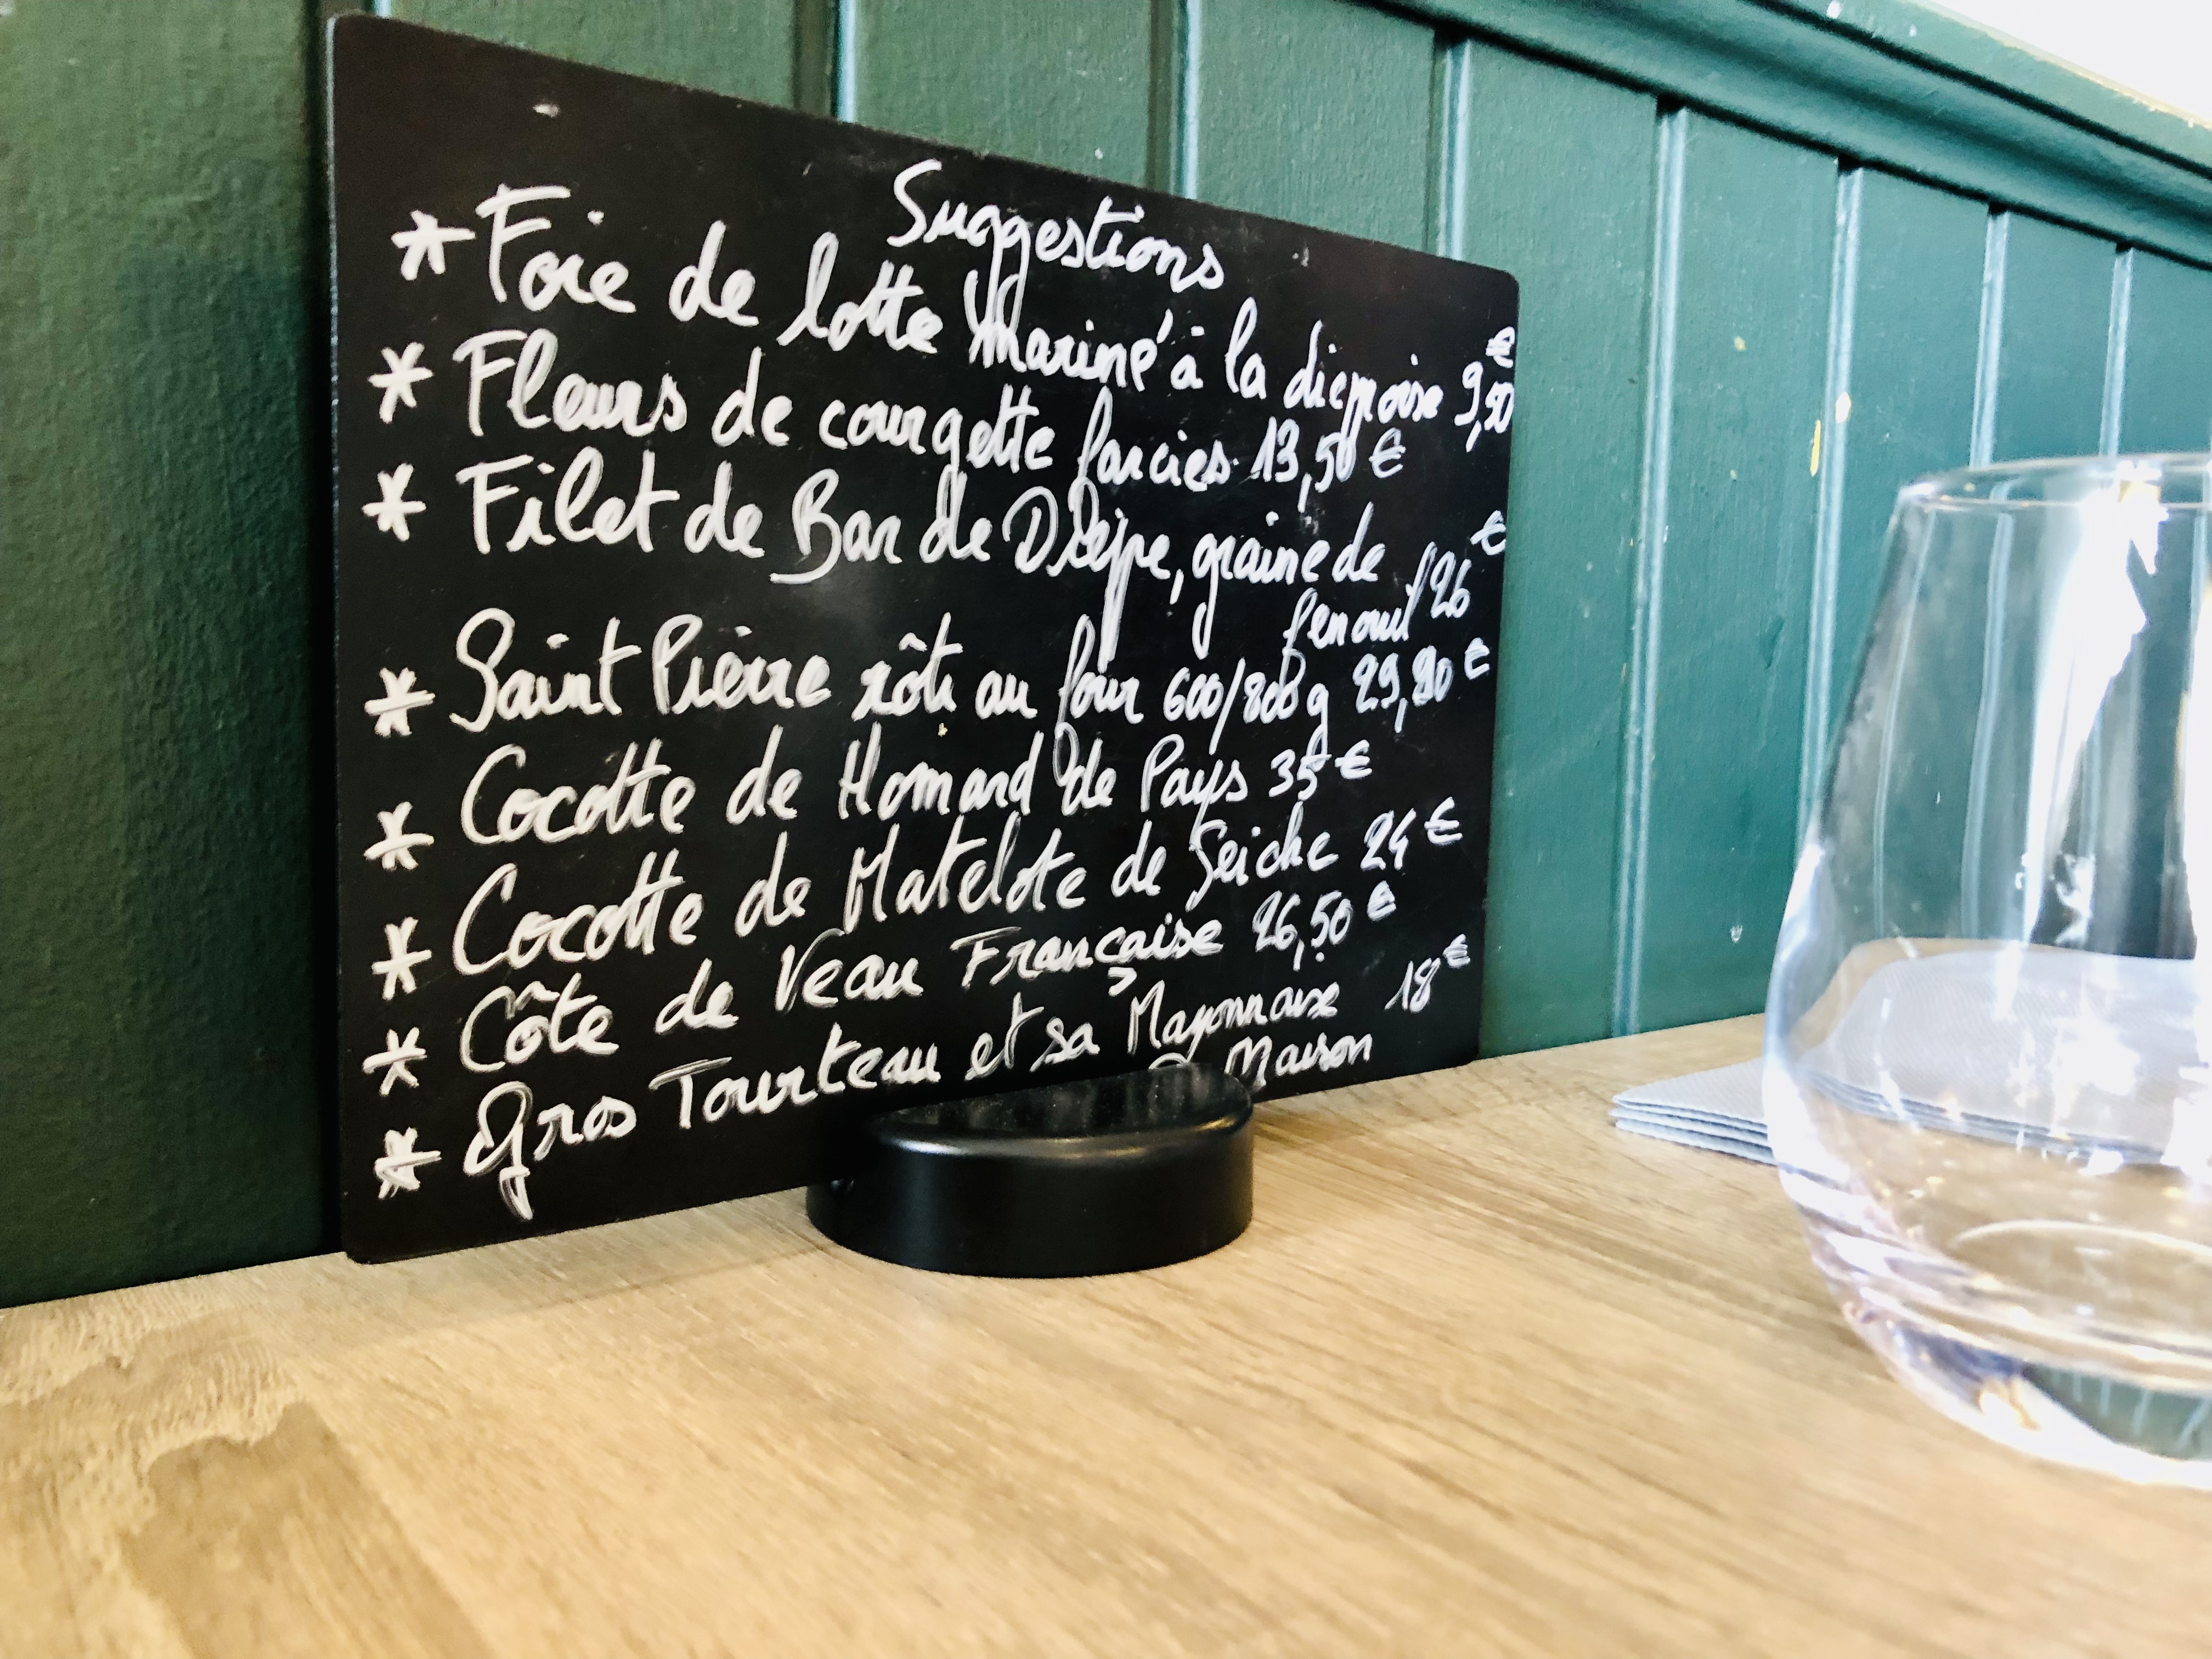 Suggestions
* Foie de lotte Mariné à la dieppoise 9,50 €
* Fleurs de courgette farcies 13,50 €
* Filet de Bar de Dieppe, graine de
fenouil 26 €
* Saint Pierre rôti au four 600/800 g 29,90 €
* Cocotte de Homard de Pays 35 €
* Cocotte de Matelote de Seiche 24 €
* Côte de Veau Française 26,50 €
* Gros Tourteau et sa Mayonnaise 18 €
Maison